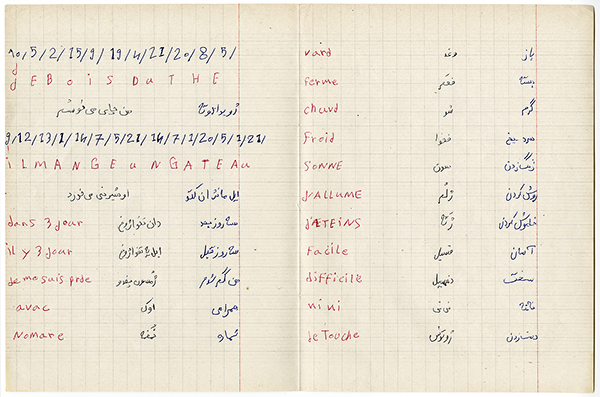 10/5/2/15/9/19/4/21/20/8/5/
JEBOiS DuTHE
من چای می نوشم
9/12/13/1/14/7/5/21/14/7/1/20/5/1/21/
iLMANGEuNGATEAu
او شیرینی می خورد ایل مانژ ان گتو
dans 3 jour دان تقوا ژوغ سه روز بعد
il y 3 jour ایل یا تقوا ژوغ سه روز قبل
de me suis prde من گم شدم
avac اوک همراهی
Nomare
vard وغد باز
ferme بسته
chaud شو گرم
froid فغوا سرد یخ
SONNE سون زنگ زدن
J'ALLUME ژلُم روشن کردن
J'ETEINS خاموش کردن
Facile فسیل آسان
difficile دفیسیل سخت
ni ni نی نی
de Touche ژوتوش دست زدن